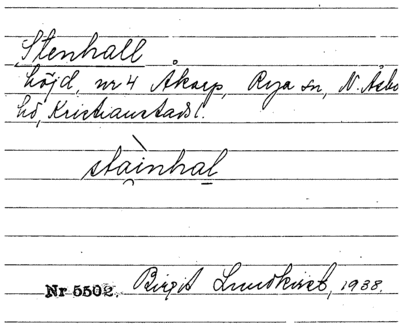 Stenhall
höjd, nr 4 Åkarp, Rya sn, N. Åsbo
hd, Kristianstads l.
stainhal
Nr 5502. Birgit Lundkvist, 1938.